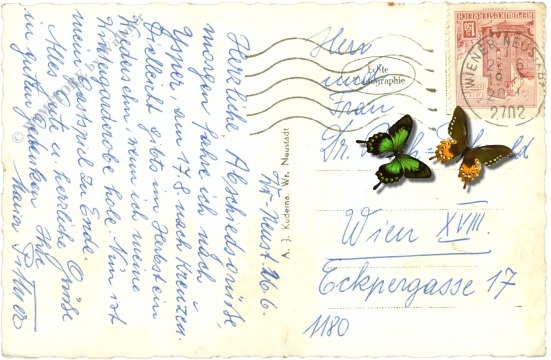 Wr. Neust. 26.6.
Herzliche Abschiedsgrüße,
morgen fahre ich nach
Ysper, am 17.8. nach Kreuzen.
Vielleicht gibts im Herbst ein
Wiedersehen, wenn ich meine
Wintergarderobe hole. Nun ist
mein Gastspiel zu Ende.
Alles Gute u. herzliche Grüße
in gutem Gedenken Ihr
A. J. Kuderna, Wr. Neustadt
Echte
Photographie
Herrn
und
Frau
Dr.
Wien XVIII.
Eckpergasse 17
1180
REPUBLIK ÖSTERREICH
WIENER NEUSTADT
2702